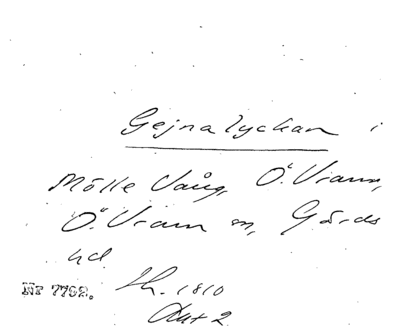 Gejnalyckan i
Mölle Vång, Ö. Vram,
Ö. Vram sn, Gärds
hd
Nr 7792. Sk. 1810
Akt 2